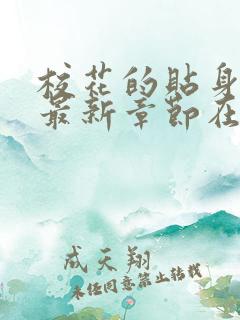 校花的贴身
最新章节在
成天翔
未经同意禁止转载